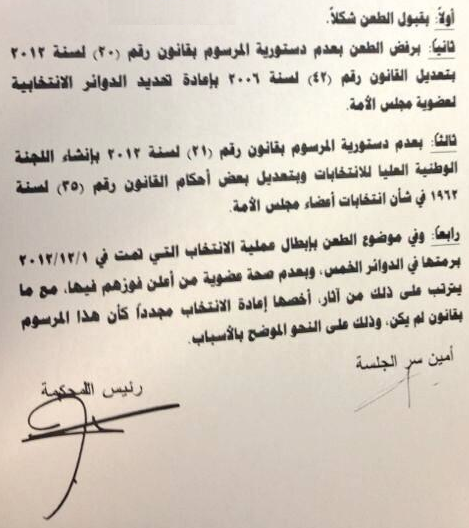 أولاً: بقبول الطعن شكلاً.
ثانياً: برفض الطعن بعدم دستورية المرسوم بقانون رقم (٢٠) لسنة ٢٠١٢
بتعديل القانون رقم (٤٢) لسنة ٢٠٠٦ بإعادة تحديد الدوائر الانتخابية
لعضوية مجلس الأمة.
ثالثاً: بعدم دستورية المرسوم بقانون رقم (٢١) لسنة ٢٠١٢ بإنشاء اللجنة
الوطنية العليا للانتخابات وبتعديل بعض أحكام القانون رقم (٣٥) لسنة
١٩٦٢ في شأن انتخابات أعضاء مجلس الأمة.
رابعاً: وفي موضوع الطعن بإبطال عملية الانتخاب التي تمت في ٢٠١٢/١٢/١
برمتها في الدوائر الخمس، وبعدم صحة عضوية من أعلن فوزهم فيها، مع ما
يترتب على ذلك من آثار، أخصها إعادة الانتخاب مجدداً كأن هذا المرسوم
بقانون لم يكن، وذلك على النحو الموضح بالأسباب.
أمين سر الجلسة
رئيس المحكمة